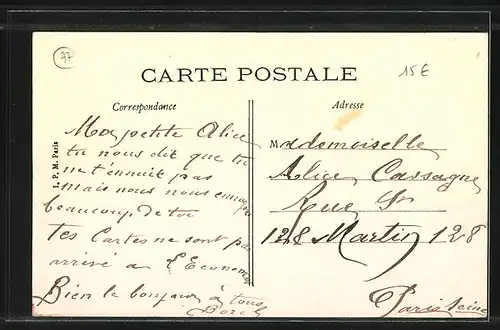 77
CARTE POSTALE
15€
Correspondance
Adresse
I. P. M. Paris
Ma petite Alice
tu nous dit que tu
ne t'ennuit pas
mais nous nous ennuyons
beaucoup de toi
tes Cartes ne sont pas
arrivé a l'Econome
Bien le bonjour à tous
Borel
Mademoiselle
Alice Cassagne
Rue St
128 Martin 128
Paris Seine